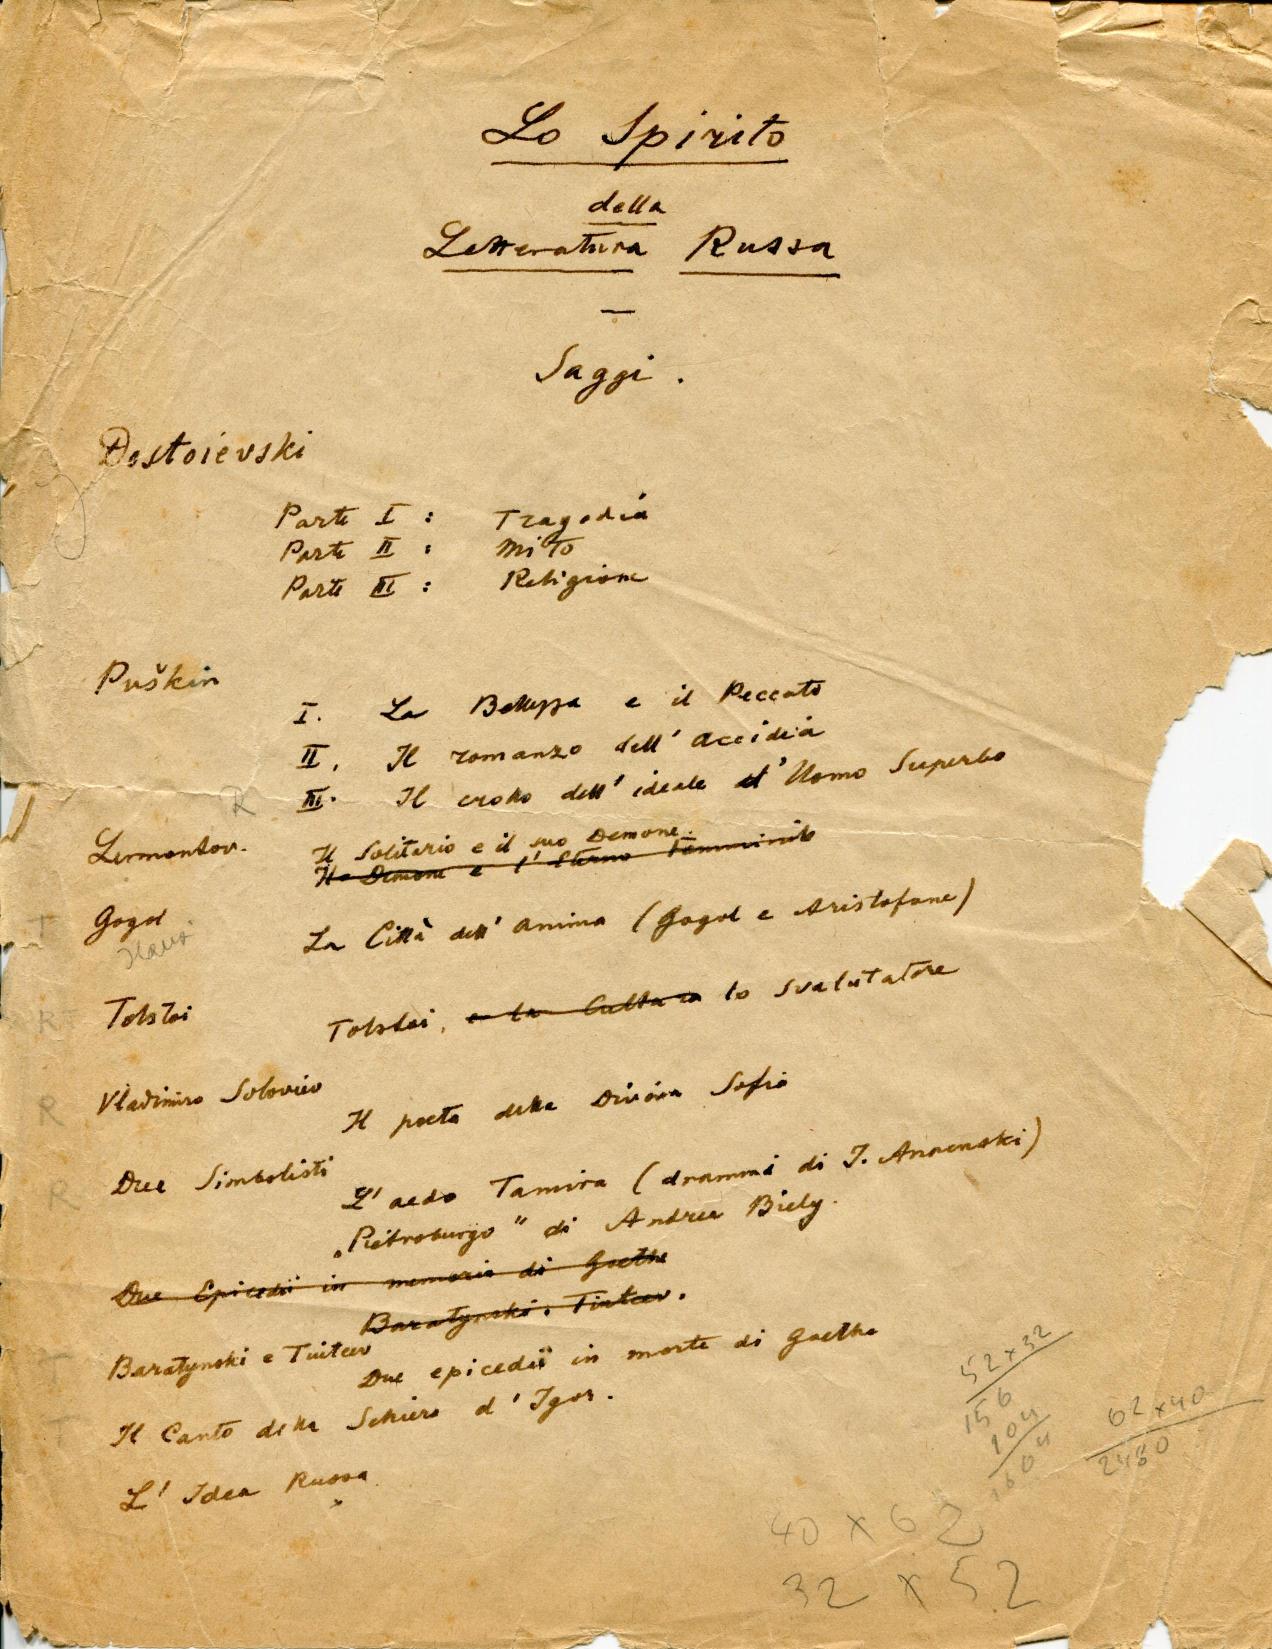 Lo Spirito
della
Letteratura Russa
—
Saggi.
Dostoievski
Parte I : Tragedia
Parte II : Mito
Parte III : Religione
Puškin
I. La Bellezza e il Peccato
II. Il romanzo dell' Accidia
III. Il crollo dell' ideale d' Uomo Superbo
R
Lermontov. Il Solitario e il suo Demone.
Il Demone e l' Eterno Femminile
T Gogol La Città dell' Anima (Gogol e Aristofane)
R Tolstoi Tolstoi, e la Cultura lo svalutatore
R Vladimiro Soloviev
Il poeta della Divina Sofia
R Due Simbolisti
L' aedo Tamira (dramma di I. Annenski)
„Pietroburgo" di Andrea Biely.
Due Epicedii in memoria di Goethe
Baratynski. Tiutcev.
T Baratynski e Tiutcev
Due epicedii in morte di Goethe
T Il Canto della Schiera d' Igor.
L' Idea Russa
52 x 32
156
104
1604
62 x 40
2480
40 x 62
32 x 52